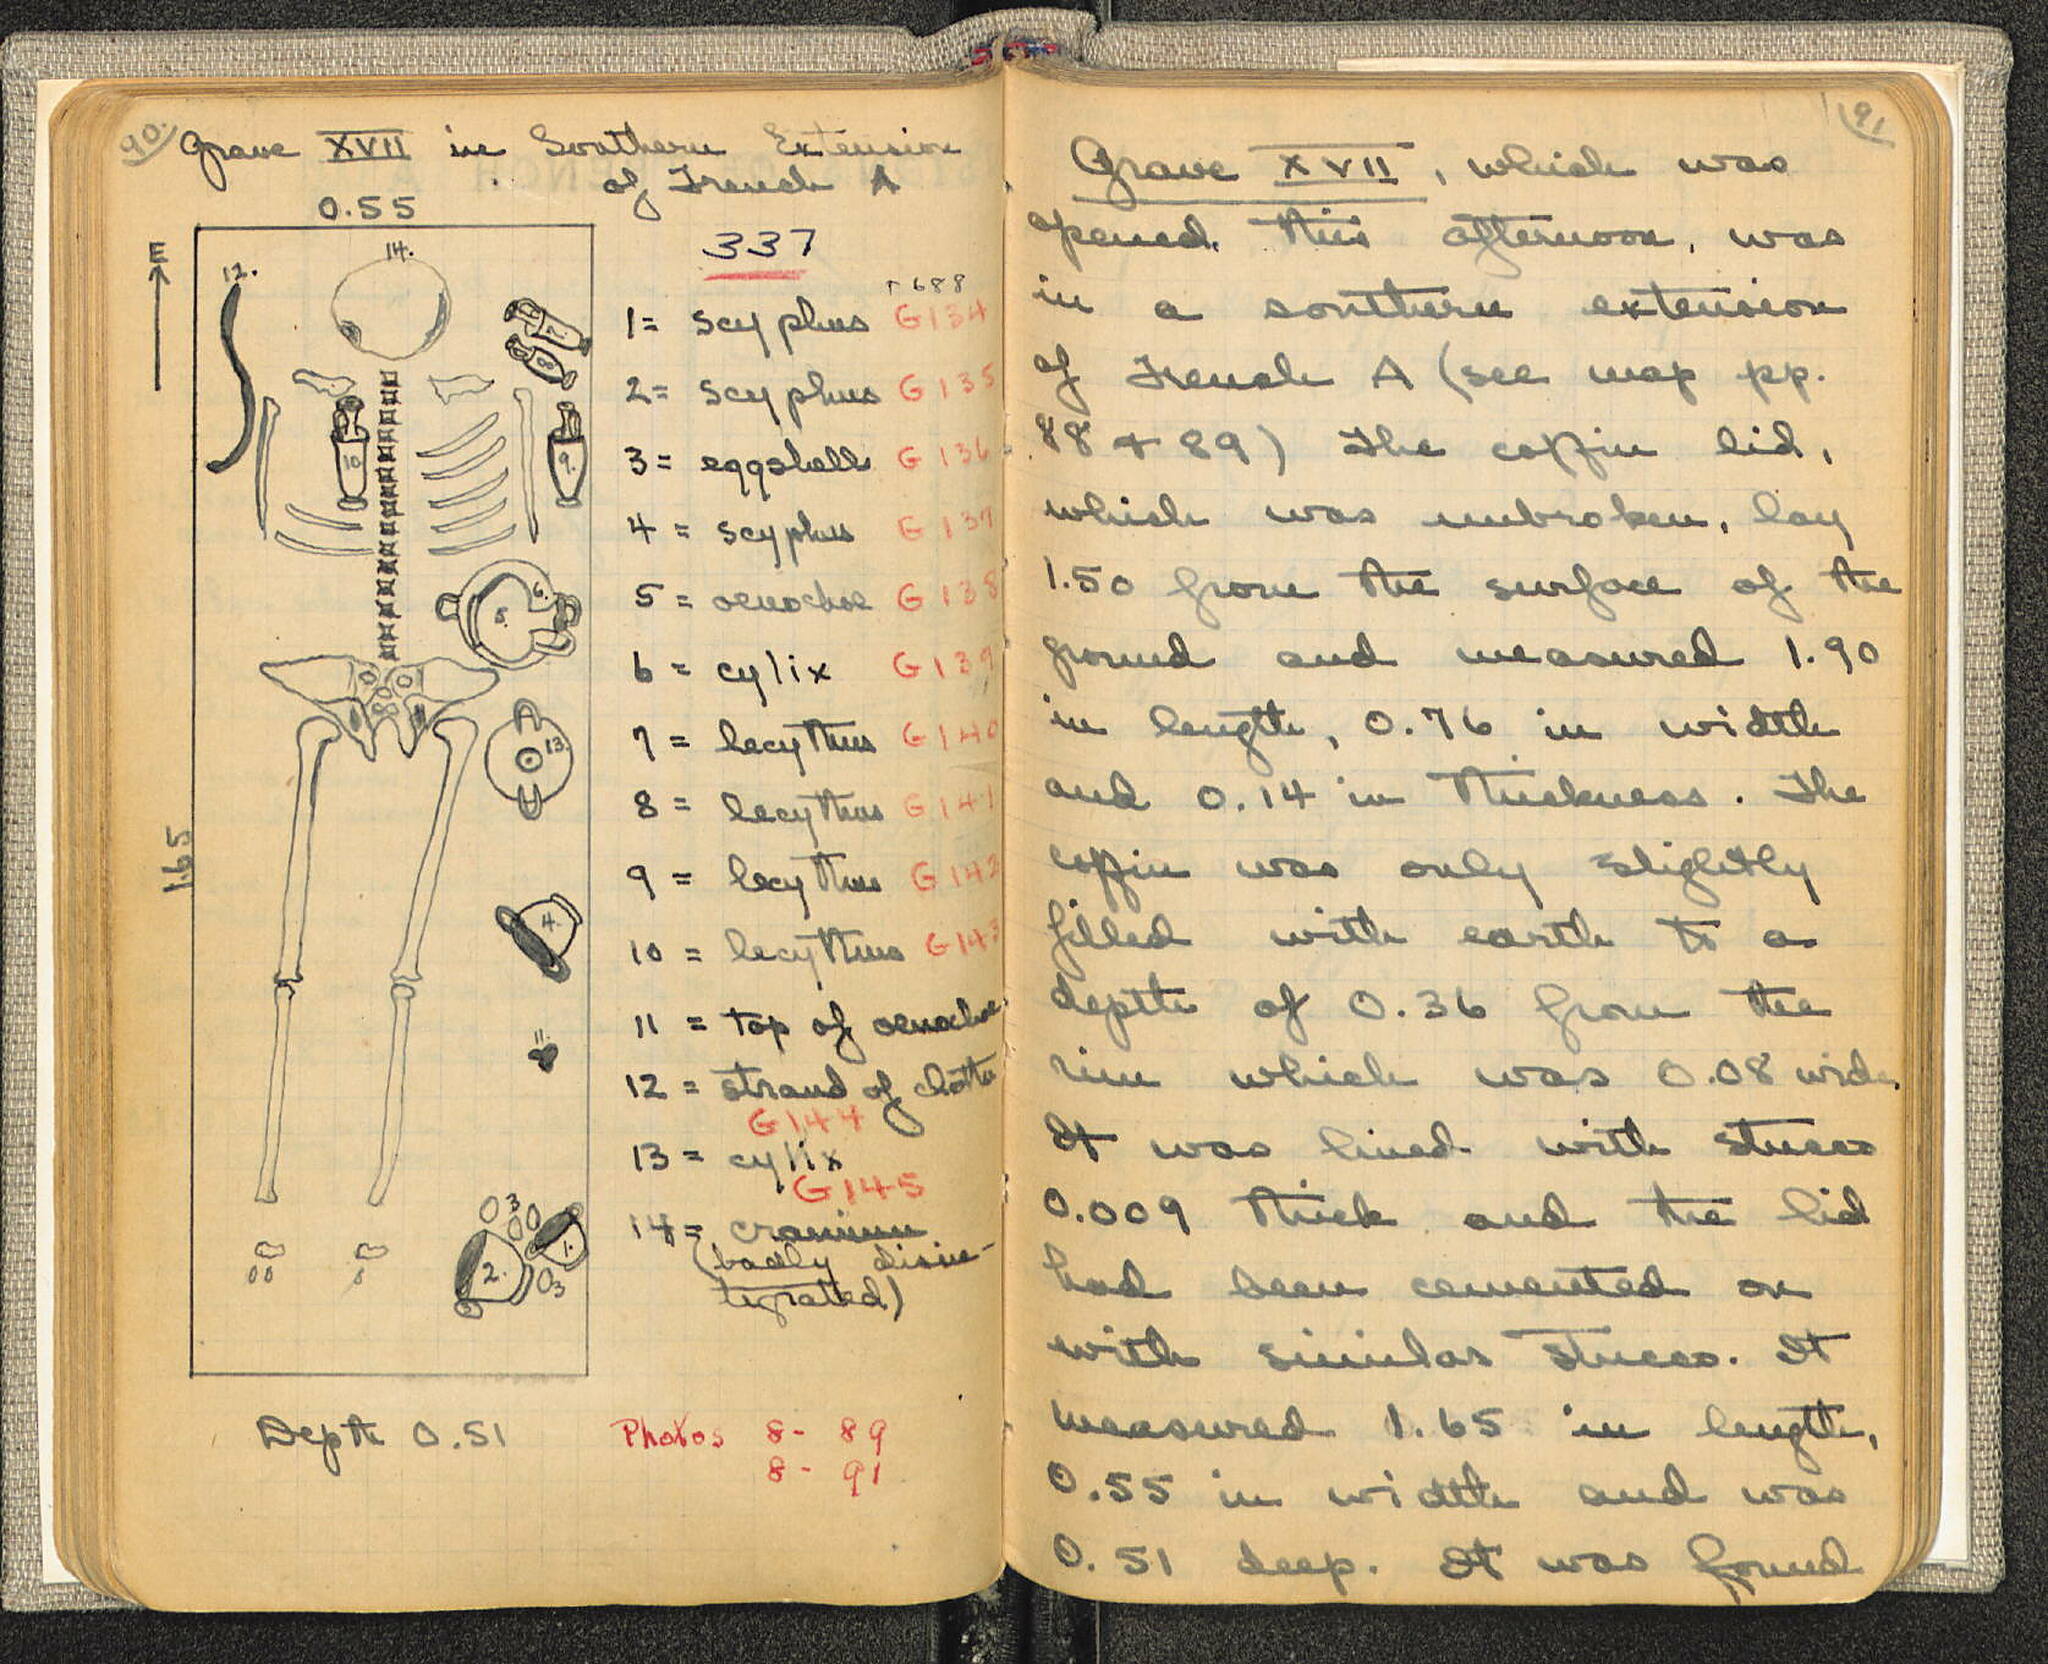 90.
Grave XVII in Southern Extension
of Trench A
0.55
E
337
T 688
1 = scyphus G134
2 = scyphus G135
3 = eggshells G136
4 = scyphus G137
5 = oenochoe G138
6 = cylix G139
7 = lecythus G140
8 = lecythus G141
9 = lecythus G142
10 = lecythus G143
11 = top of oenochoe
12 = strand of cloth
G144
13 = cylix
G145
14 = cranium
(badly disin-
tegrated)
12.
14.
7
8
10
9.
5.
6.
13.
4.
11
3
1.
2.
3
1.65
Depth 0.51
Photos 8 - 89
8 - 91
91
Grave XVII, which was
opened this afternoon, was
in a southern extension
of Trench A (see map pp.
88 + 89) The coffin lid,
which was unbroken, lay
1.50 from the surface of the
ground and measured 1.90
in length, 0.76 in width
and 0.14 in thickness. The
coffin was only slightly
filled with earth to a
depth of 0.36 from the
rim which was 0.08 wide.
It was lined with stucco
0.009 thick and the lid
had been cemented on
with similar stucco. It
measured 1.65 in length,
0.55 in width and was
0.51 deep. It was found